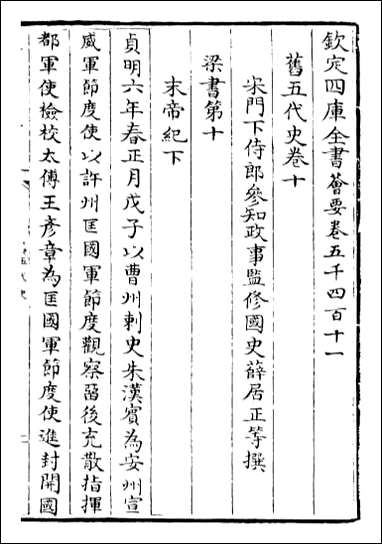 欽定四庫全書薈要卷五千四百十一
舊五代史卷十
宋門下侍郎參知政事監修國史薛居正等撰
梁書第十
末帝紀下
貞明六年春正月戊子以曹州刺史朱漢賓為安州宣
威軍節度使以許州匡國軍節度觀察留後充散指揮
都軍使檢校太傅王彥章為匡國軍節度使進封開國